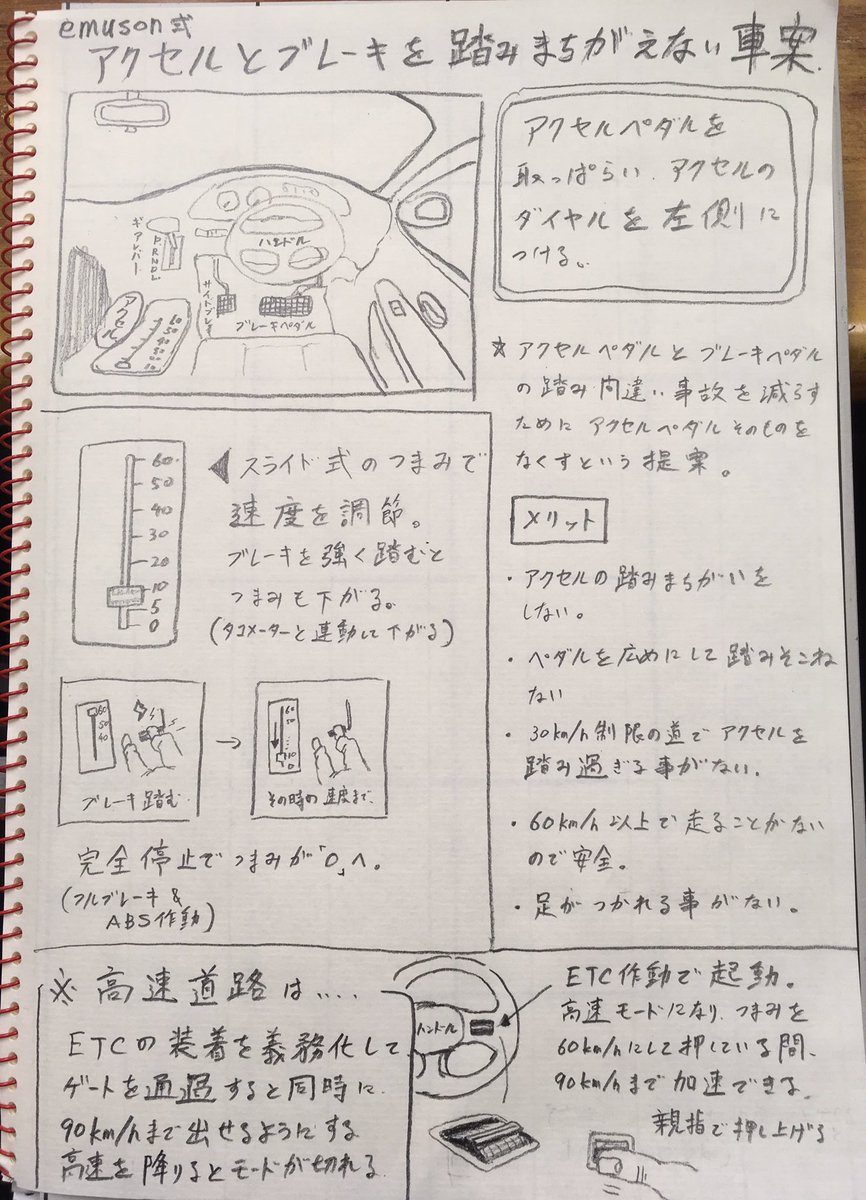 emuson式
アクセルとブレーキを踏みまちがえない車案.
ハンドル
ギアレバー
P.RNDL.
サイドブレーキ
ブレーキペダル
アクセル
60
50
40
30
20
10
アクセルペダルを
取っぱらい、アクセルの
ダイヤルを左側に
つける。
*アクセルペダルとブレーキペダル
の踏み間違い事故を減らす
ために アクセルペダルそのものを
なくすという提案。
60
50
40
30
20
10
5
0
◀スライド式のつまみで
速度を調節。
ブレーキを強く踏むと
つまみも下がる。
(タコメーターと連動して下がる)
メリット
・アクセルの踏みまちがいを
しない。
・ペダルを広めにして踏みそこね
ない
・30km/h制限の道でアクセルを
踏み過ぎる事がない.
・60km/h以上で走ることがない
ので安全。
・足がつかれる事がない。
60
50
40
ブレーキ踏む.
→
60
50
10
0
その時の速度まで.
完全停止でつまみが「0」へ.
(フルブレーキ&
ABS作動)
※高速道路は....
ETCの装着を義務化して
ゲートを通過すると同時に.
90km/hまで出せるようにする
高速を降りるとモードが切れる.
ハンドル
ETC作動で起動。
高速モードになり、つまみを
60km/hにして押している間、
90km/hまで加速できる.
親指で押し上げる